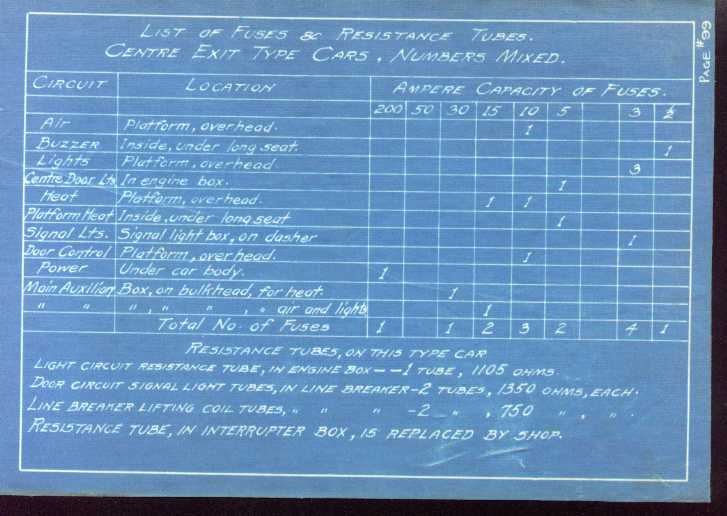 PAGE #99
LIST OF FUSES & RESISTANCE TUBES.
CENTRE EXIT TYPE CARS, NUMBERS MIXED.
CIRCUIT LOCATION AMPERE CAPACITY OF FUSES.
200 50 30 15 10 5 3 ½
Air Platform, overhead. 1
BUZZER Inside, under long seat. 1
Lights Platform, overhead. 3
Centre Door Lts. In engine box. 1
Heat Platform, overhead. 1 1
Platform Heat Inside, under long seat 1
Signal Lts. Signal light box, on dasher 1
Door Control Platform, overhead. 1
Power Under car body. 1
Main Auxiliary Box, on bulkhead, for heat. 1
" " " , " " , " air and lights 1
Total No. of Fuses 1 1 2 3 2 4 1
RESISTANCE TUBES, ON THIS TYPE CAR
LIGHT CIRCUIT RESISTANCE TUBE, IN ENGINE BOX -- 1 TUBE, 1105 OHMS.
DOOR CIRCUIT SIGNAL LIGHT TUBES, IN LINE BREAKER - 2 TUBES, 1350 OHMS, EACH.
LINE BREAKER LIFTING COIL TUBES, " " " - 2 " , 750 " , " .
RESISTANCE TUBE, IN INTERRUPTER BOX, IS REPLACED BY SHOP.